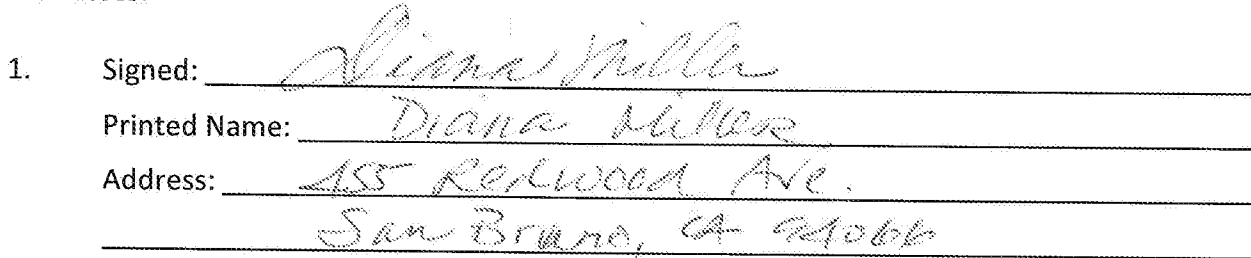 1. Signed: Diana Miller
Printed Name: Diana Miller
Address: 455 Redwood Ave.
San Bruno, CA 94066